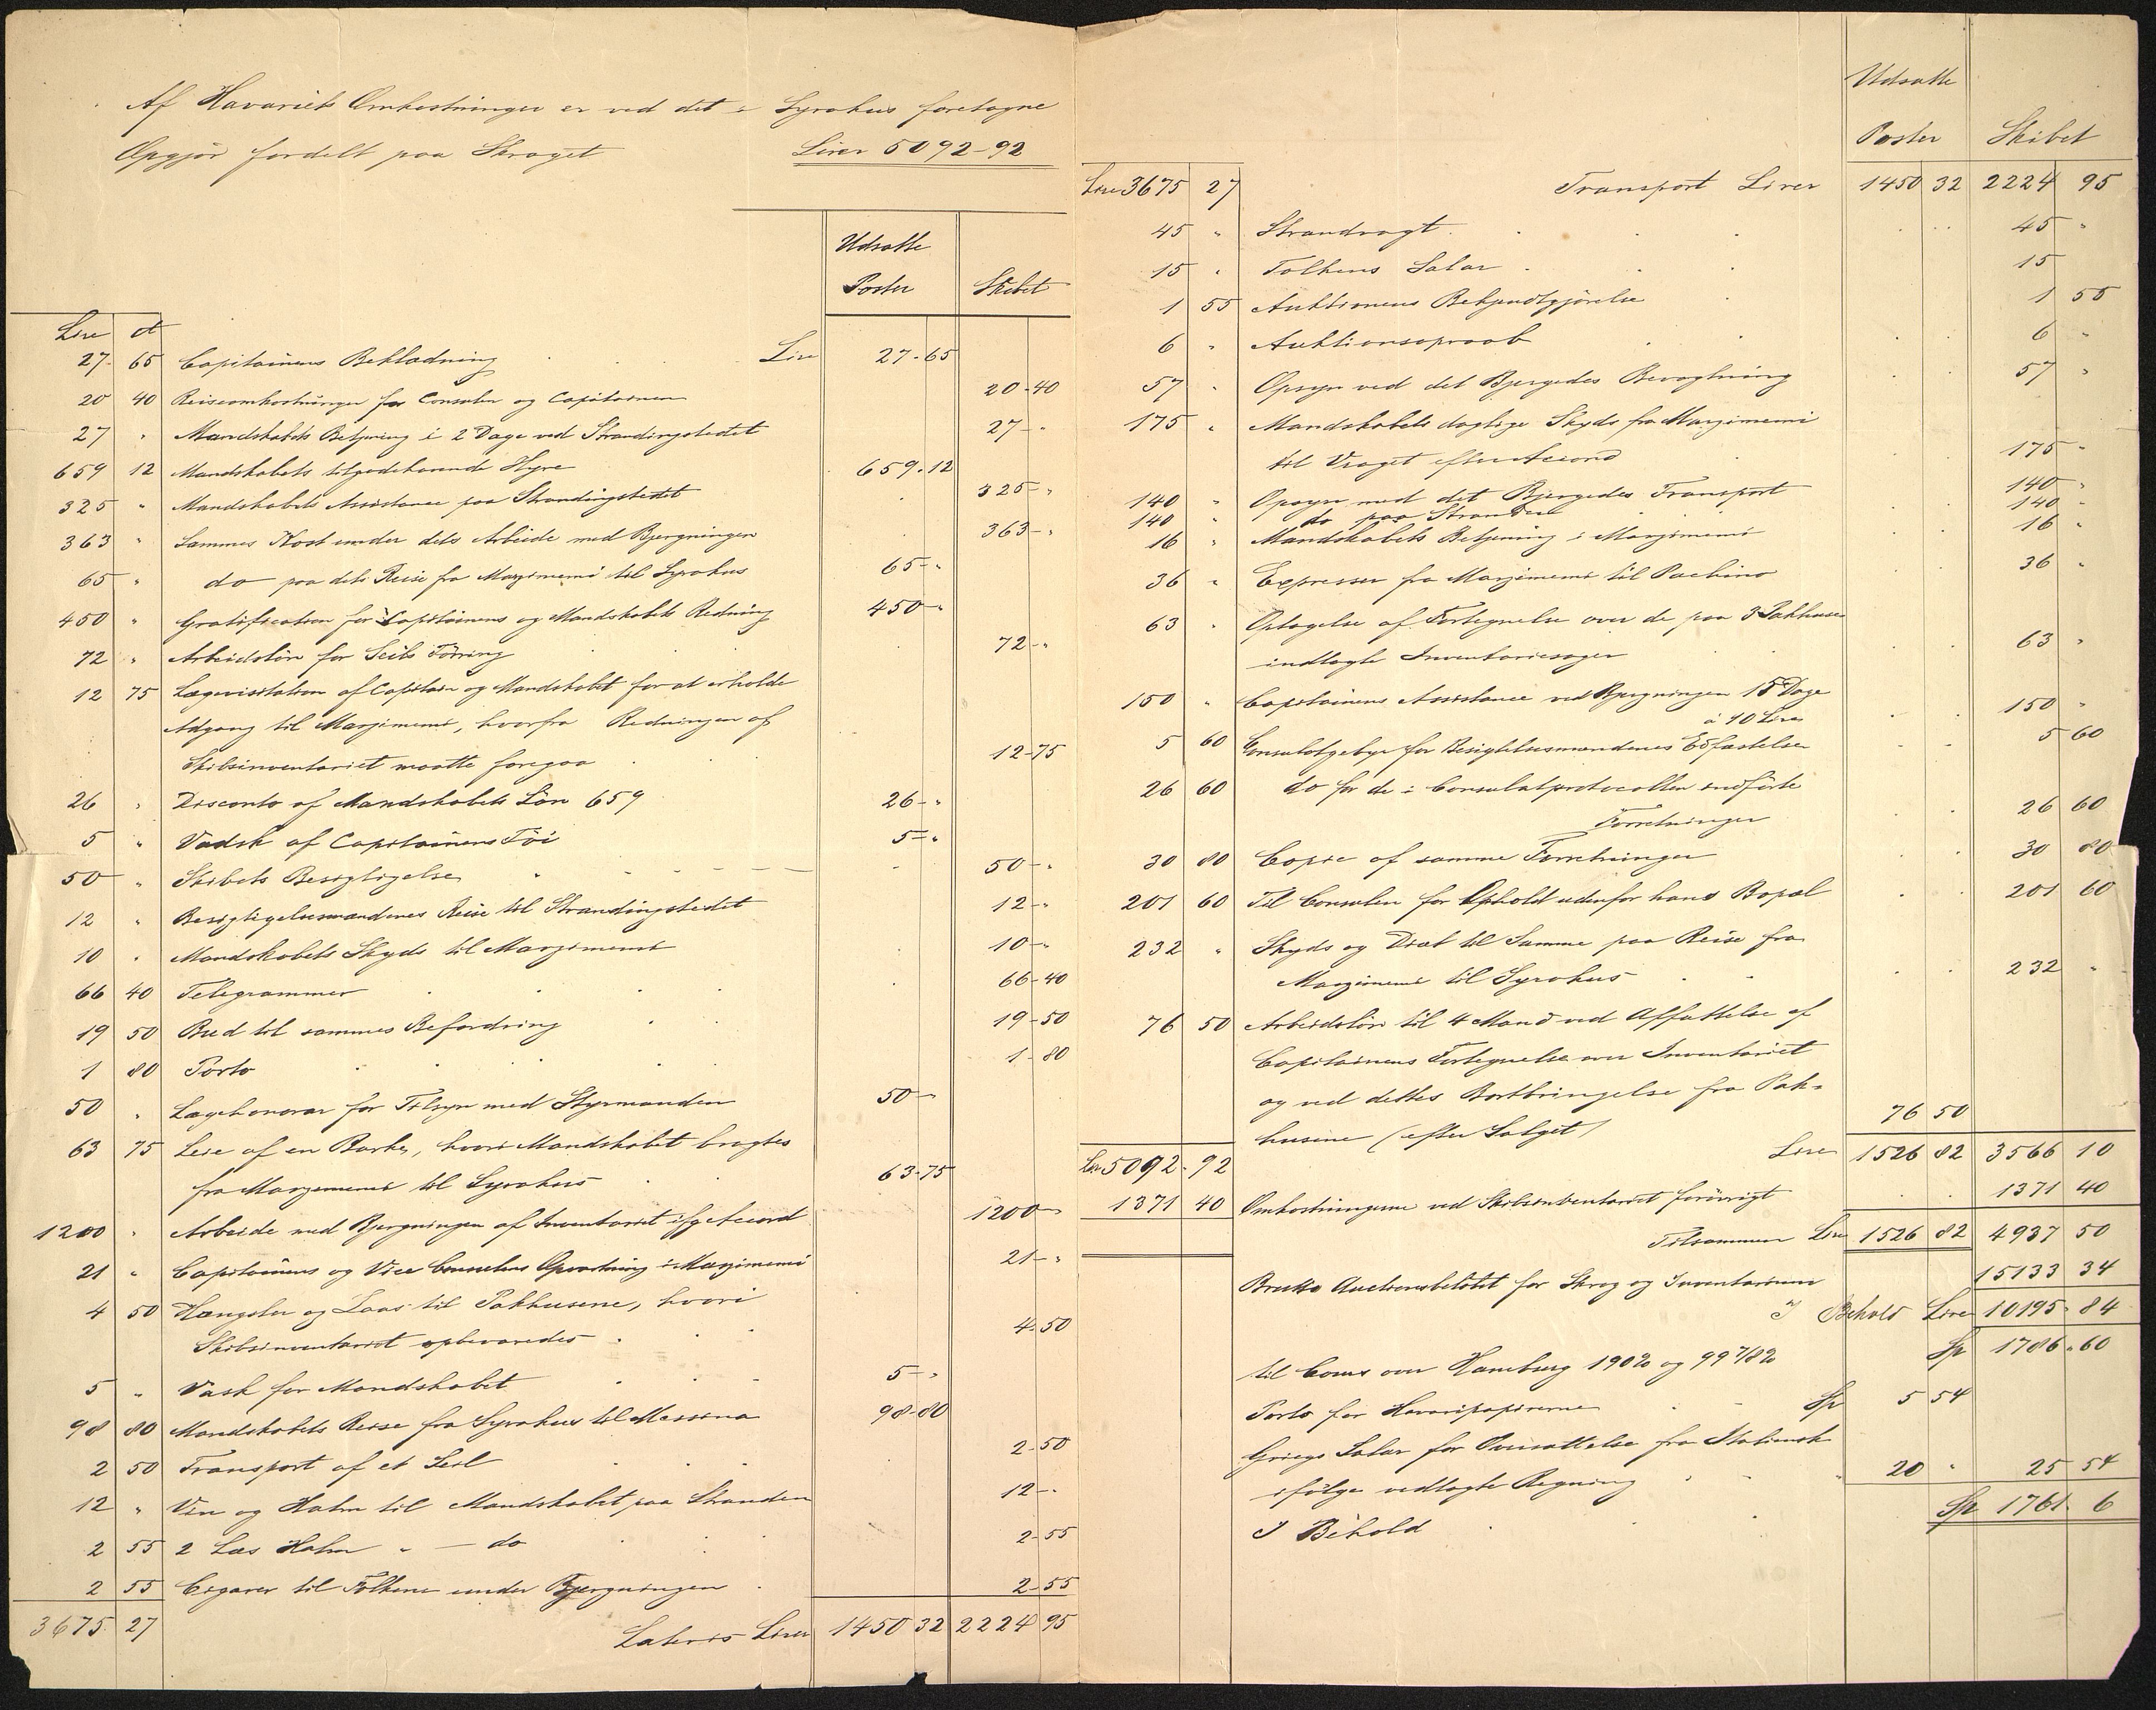 Af Havariets Omkostninger er ved det i Syrakus foretagne
Opgjör fordelt paa Skroget Lirer 5092-92
Udsatte
Poster Skibet
Lire ct
27 65 Capitainens Beklædning Lire 27-65
20 40 Reiseomkostninger for Consulen og Capitainen 20-40
27 " Mandskabets Betjening i 2 Dage ved Strandingstedet 27- "
659 12 Mandskabets tilgodehavende Hyre 659-12
325 " Mandskabets Assistance paa Strandingstedet 325- "
363 " Sammes Kost under dets Arbeide med Bjergningen 363- "
65 " do paa dets Reise fra Marzimemi til Syrakus 65- "
450 " Gratification for Capitainens og Mandskabets Redning 450- "
72 " Arbeidslön for Seils Törring 72- "
12 75 Lægevisitation af Capitain og Mandskabet for at erholde
Adgang til Marzimemi, hvorfra Redningen af
Skibsinventariet maatte foregaa 12-75
26 " Disconto af Mandskabets Lön 659 26- "
5 " Vadsk af Capitainens Töi 5- "
50 " Skibets Besigtigelse 50- "
12 " Besigtigelsesmændenes Reise til Strandingstedet 12- "
10 " Mandskabets Skyds til Marzimemi 10- "
66 40 Telegrammer 66-40
19 50 Bud til sammes Befordring 19-50
1 80 Porto 1-80
50 " Lægehonorar for Tilsyn med Styrmanden 50-
63 75 Leie af en Barke, hvori Mandskabet bragtes
fra Marzimemi til Syrakus 63-75
1200 " Arbeide med Bjergningen af Inventariet ifg Accord 1200-
21 " Capitainens og Vice Consulens Opvartning i Marzimemi 21- "
4 50 Hængsler og Laas til Pakhusene, hvori
Skibsinventariet opbevaredes 4-50
5 " Vask for Mandskabet 5- "
98 80 Mandskabets Reise fra Syrakus til Messina 98-80
2 50 Transport af et Seil 2-50
12 " Vin og Halm til Mandskabet paa Stranden 12- "
2 55 2 Læs Halm " - do 2-55
2 55 Cigarer til Folkene under Bjergningen 2-55
3675 27 Lateris Lirer 1450 32 2224 95
Udsatte
Poster Skibet
Lire 3675 27 Transport Lirer 1450 32 2224 95
45 " Strandvagt 45 "
15 " Tolkens Salar 15
1 55 Auktionens Bekjendtgjörelse 1 55
6 " Auktionsopraab 6 "
57 " Opsyn ved det Bjergedes Bevogtning 57 "
175 " Mandskabets daglige Skyds fra Marzimemi
til Vraget efter Accord 175 "
140 " Opsyn med det Bjergedes Transport 140 "
140 " do paa Stranden 140 "
16 " Mandskabets Betjening i Marzimemi 16 "
36 " Expresser fra Marzimemi til Pachino 36 "
63 " Optagelse af Fortegnelse over de paa 3 Pakhuse
indlagte Inventariesager 63 "
150 " Capitainens Assistance ved Bjergningen 15 Dage
a 10 Lire 150 "
5 60 Consulatgebyr for Besigtelsesmændenes Edfæstelse 5 60
26 60 do for de i Consulatprotocollen indförte
Forretninger 26 60
30 80 Copie af samme Forretninger 30 80
201 60 Til Consulen for Ophold udenfor hans Bopæl 201 60
232 " Skyds og Diæt til Samme paa Reise fra
Marzimemi til Syrakus 232 "
76 50 Arbeidslön til 4 Mand ved Affattelse af
Capitainens Fortegnelse over Inventariet
og ved dettes Bortbringelse fra Pak-
husene (efter Salget) 76 50
Lire 5092-92 Lire 1526 82 3566 10
1371 40 Omkostningerne ved Skibsinventariet forövrigt 1371 40
Tilsammen Lire 1526 82 4937 50
Brutto Auctionsbelöbet for Skrog og Inventarium 15133 34
I Behold Lire 10195-84
til Cours over Hamburg 190% og 99 7/8% Sp 1786-60
Porto for Havaripapirerne Sp 5 54
Griegs Salar for Oversættelse fra Italiensk
ifölge vedlagte Regning 20 " 25 54
I Behold Sp 1761 6